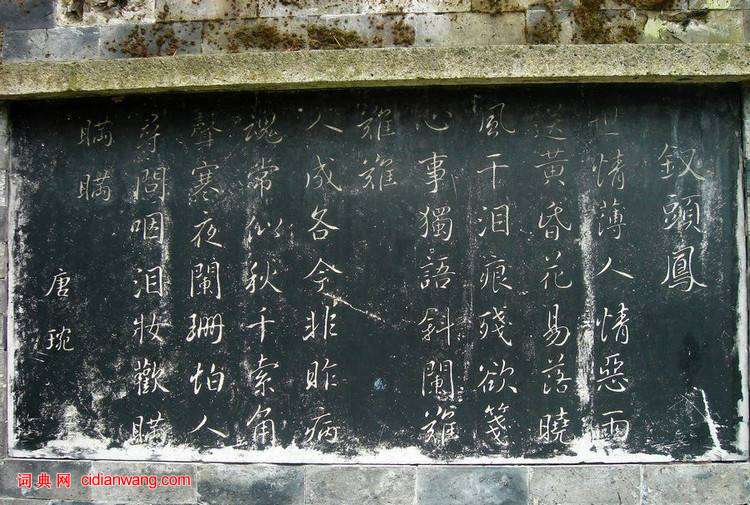 釵頭鳳
世情薄人情惡雨
送黃昏花易落曉
風干泪痕殘欲箋
心事獨語斜闌難
難難
人成各今非昨病
魂常似秋千索角
聲寒夜闌珊怕人
尋問咽泪妝歡瞞
瞞瞞
唐琬
词典网 cidianwang.com